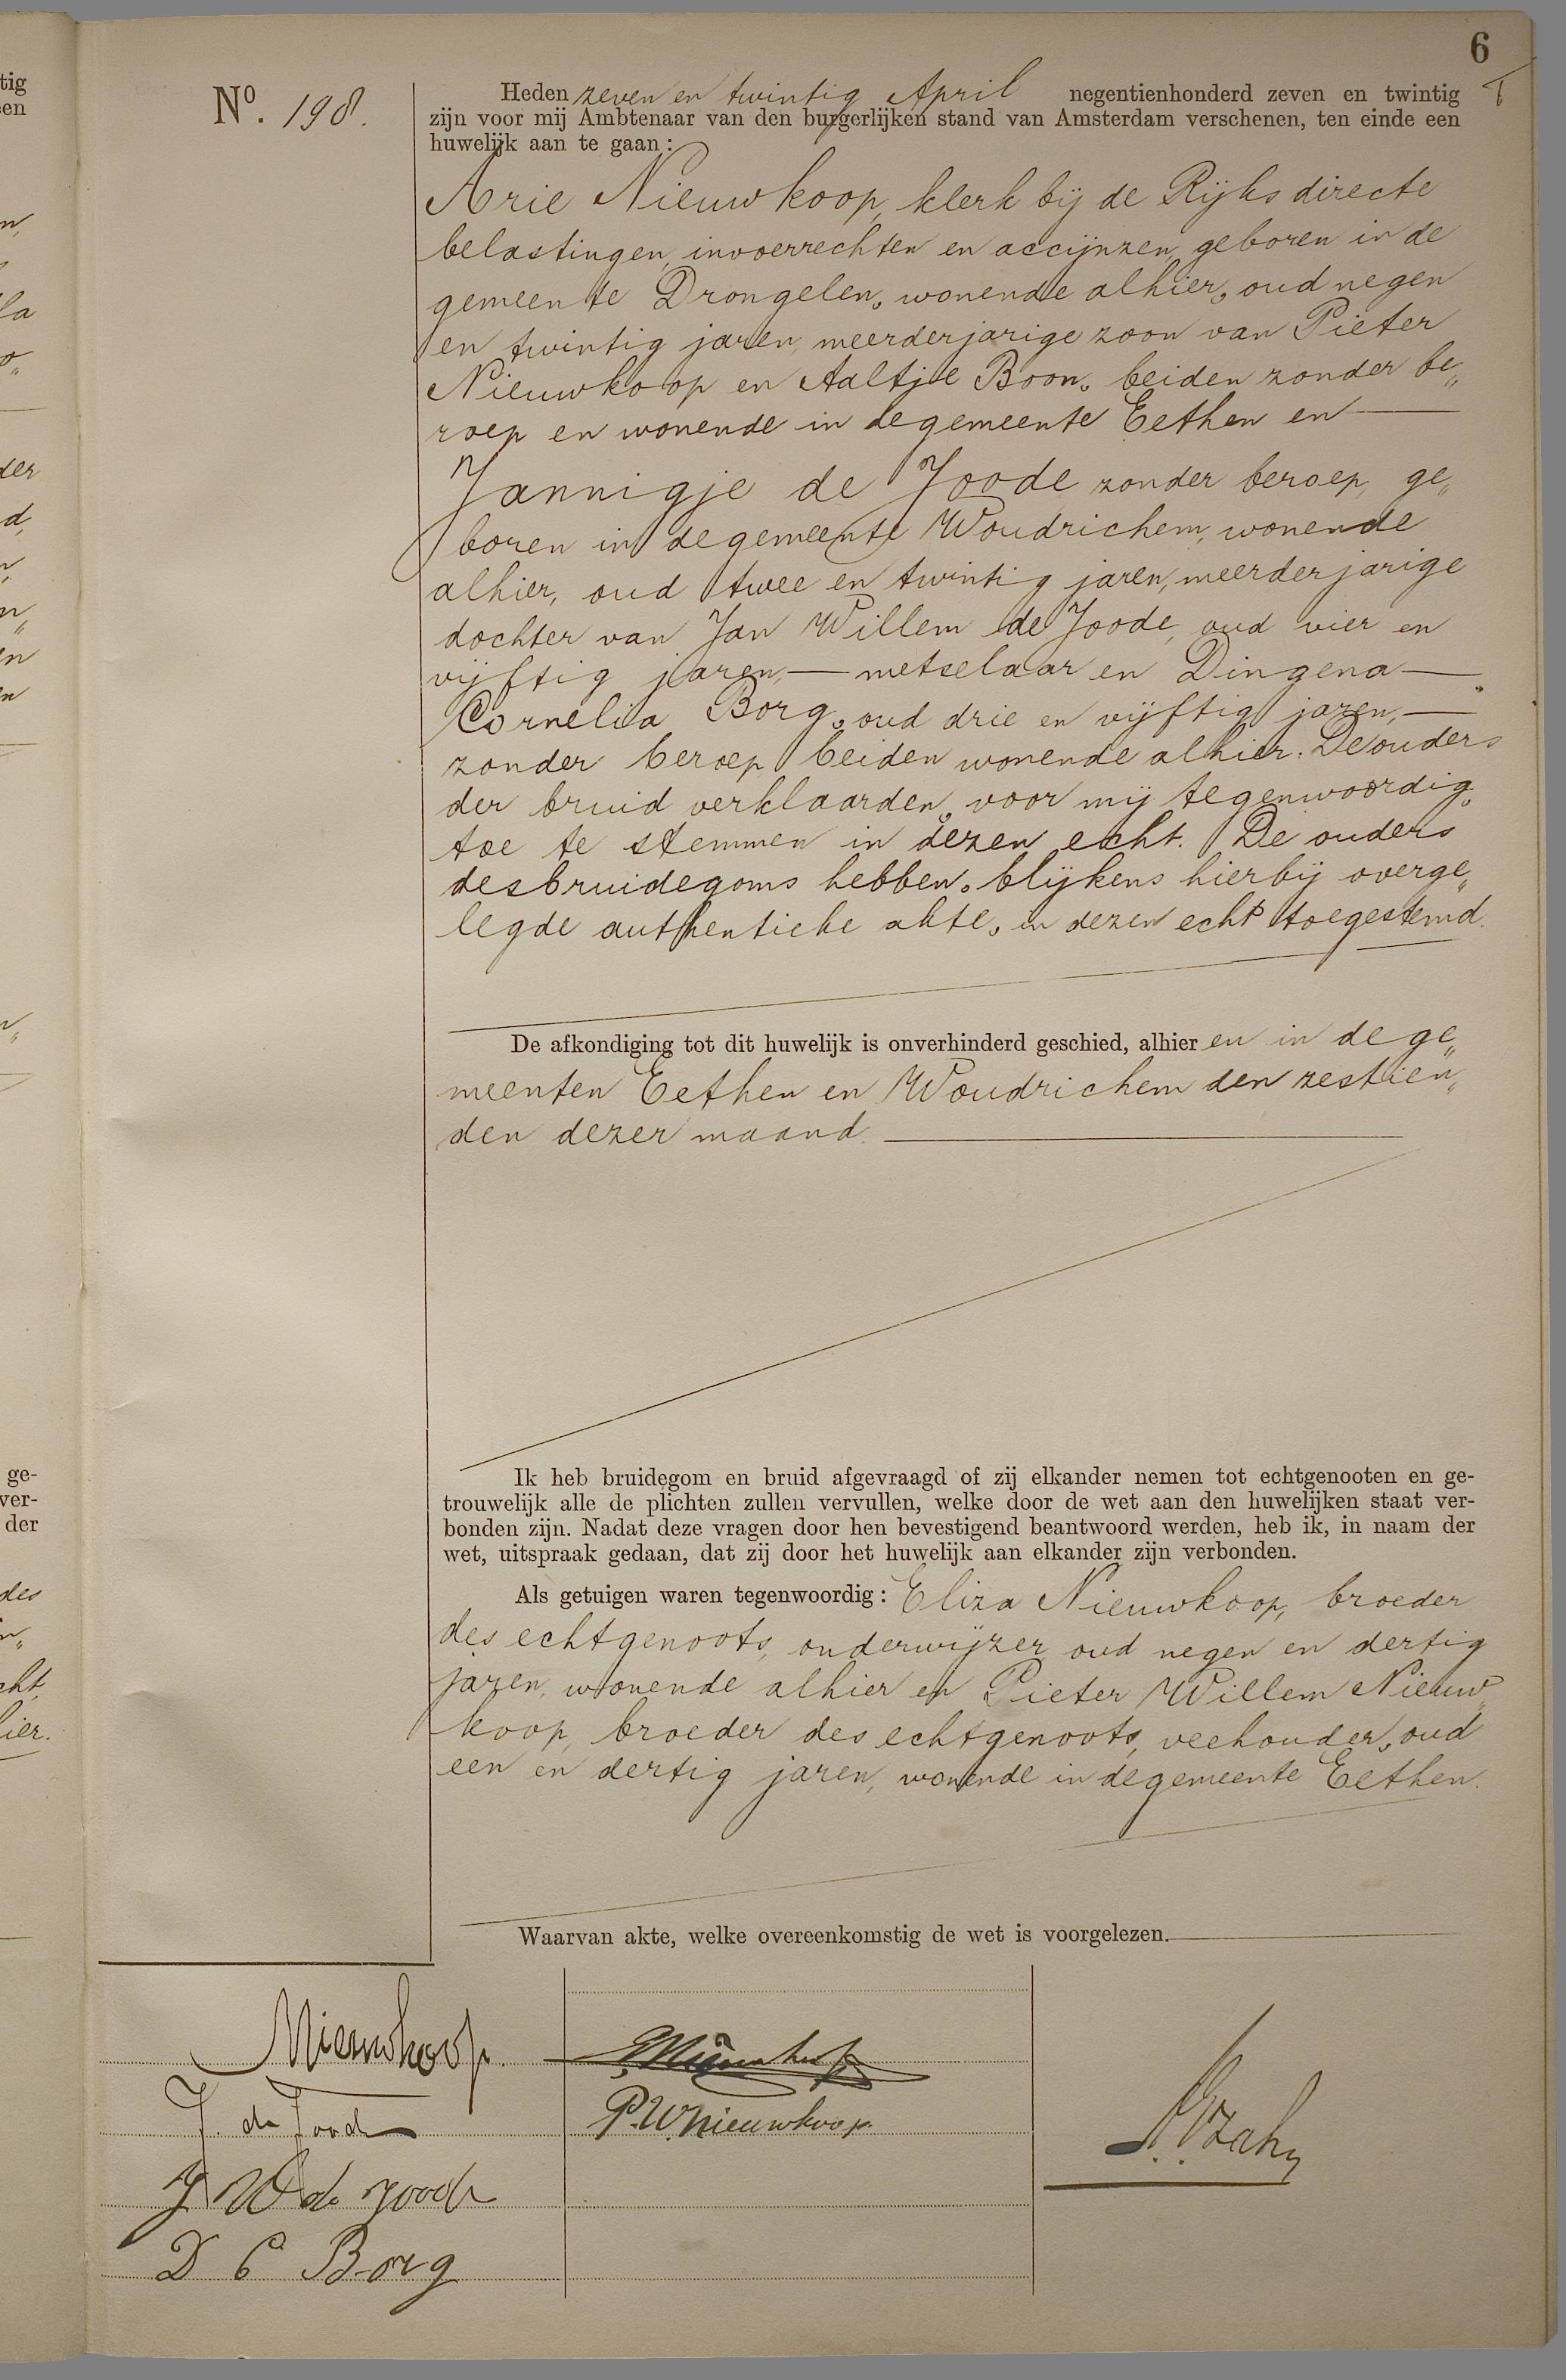 6
tig
en
No. 198.
Heden zeven en twintig April negentienhonderd zeven en twintig
zijn voor mij Ambtenaar van den burgerlijken stand van Amsterdam verschenen, ten einde een
huwelijk aan te gaan:
Arie Nieuwkoop, klerk bij de Rijks directe
belastingen, invoerrechten en accijnzen, geboren in de
gemeente Drongelen, wonende alhier, oud negen
en twintig jaren, meerderjarige zoon van Pieter
Nieuwkoop en Aaltje Boon, beiden zonder be„
roep en wonende in de gemeente Eethen en
Jannigje de Joode zonder beroep, ge„
boren in de gemeente Woudrichem, wonende
alhier, oud twee en twintig jaren, meerderjarige
dochter van Jan Willem de Joode, oud vier en
vijftig jaren, — metselaar en Dingena —
Cornelia Borg, oud drie en vijftig jaren, —
zonder beroep beiden wonende alhier. De ouders
der bruid verklaarden, voor mij tegenwoordig,
toe te stemmen in dezen echt. De ouders
des bruidegoms hebben, blijkens hierbij overge„
legde authentieke akte, in dezen echt toegestemd.
De afkondiging tot dit huwelijk is onverhinderd geschied, alhier en in de ge„
meenten Eethen en Woudrichem den zestien„
den dezer maand.
Ik heb bruidegom en bruid afgevraagd of zij elkander nemen tot echtgenooten en ge-
trouwelijk alle de plichten zullen vervullen, welke door de wet aan den huwelijken staat ver-
bonden zijn. Nadat deze vragen door hen bevestigend beantwoord werden, heb ik, in naam der
wet, uitspraak gedaan, dat zij door het huwelijk aan elkander zijn verbonden.
Als getuigen waren tegenwoordig: Eliza Nieuwkoop, broeder
des echtgenoots, onderwijzer, oud negen en dertig
jaren, wonende alhier en Pieter Willem Nieuw„
koop, broeder des echtgenoots, veehouder, oud
een en dertig jaren, wonende in de gemeente Eethen.
Waarvan akte, welke overeenkomstig de wet is voorgelezen.
Nieuwkoop.
J. de Joode
J W de Joode
D C Borg
E. Nieuwkoop
P.W. Nieuwkoop